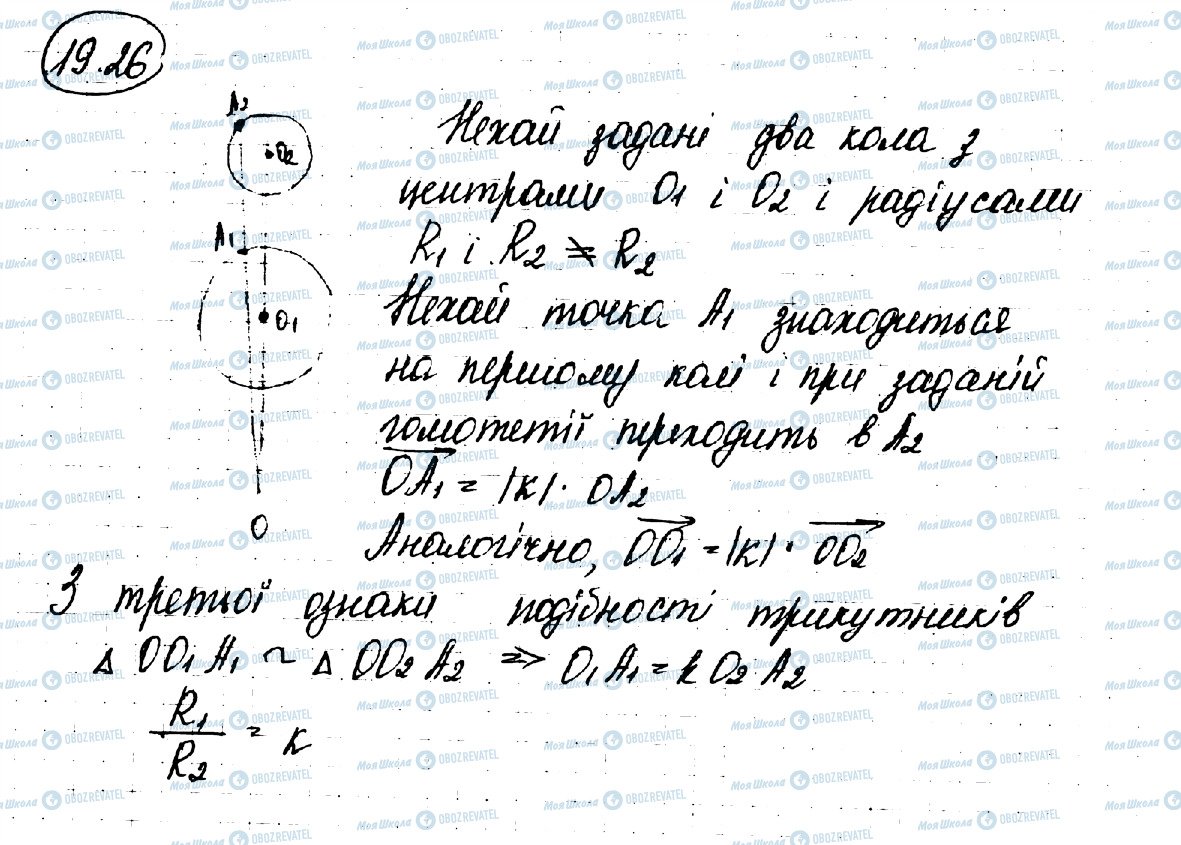 19.26
A2
O2
Нехай задані два кола з
центрами O1 і O2 і радіусами
A1
R1 і R2 ≠ R2
O1
Нехай точка A1 знаходиться
на першому колі і при заданій
гомотетії переходить в A2
OA1 = |к| · OA2
O
Аналогічно, OO1 = |к| · OO2
З третьої ознаки подібності трикутників
Δ OO1A1 ~ Δ OO2A2 => O1A1 = k O2A2
R1/R2 = к
Моя Школа OBOZREVATEL